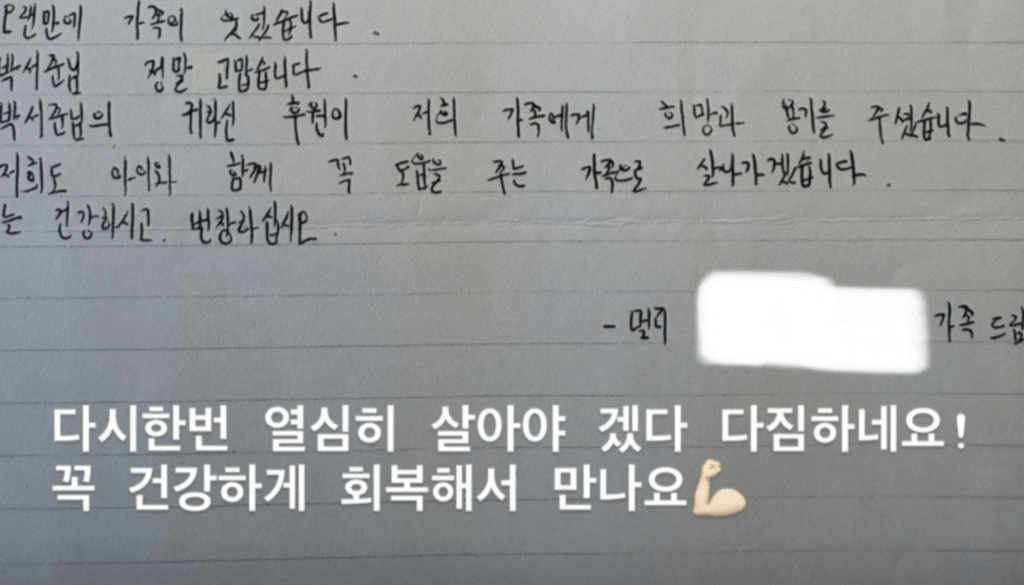 오랜만에 가족이 웃었습니다.
박서준님 정말 고맙습니다.
박서준님의 귀하신 후원이 저희 가족에게 희망과 용기를 주셨습니다.
저희도 아이와 함께 꼭 도움을 주는 가족으로 살아가겠습니다.
는 건강하시고, 번창하십시오.
- 멀리 가족 드림
다시한번 열심히 살아야 겠다 다짐하네요!
꼭 건강하게 회복해서 만나요💪🏻